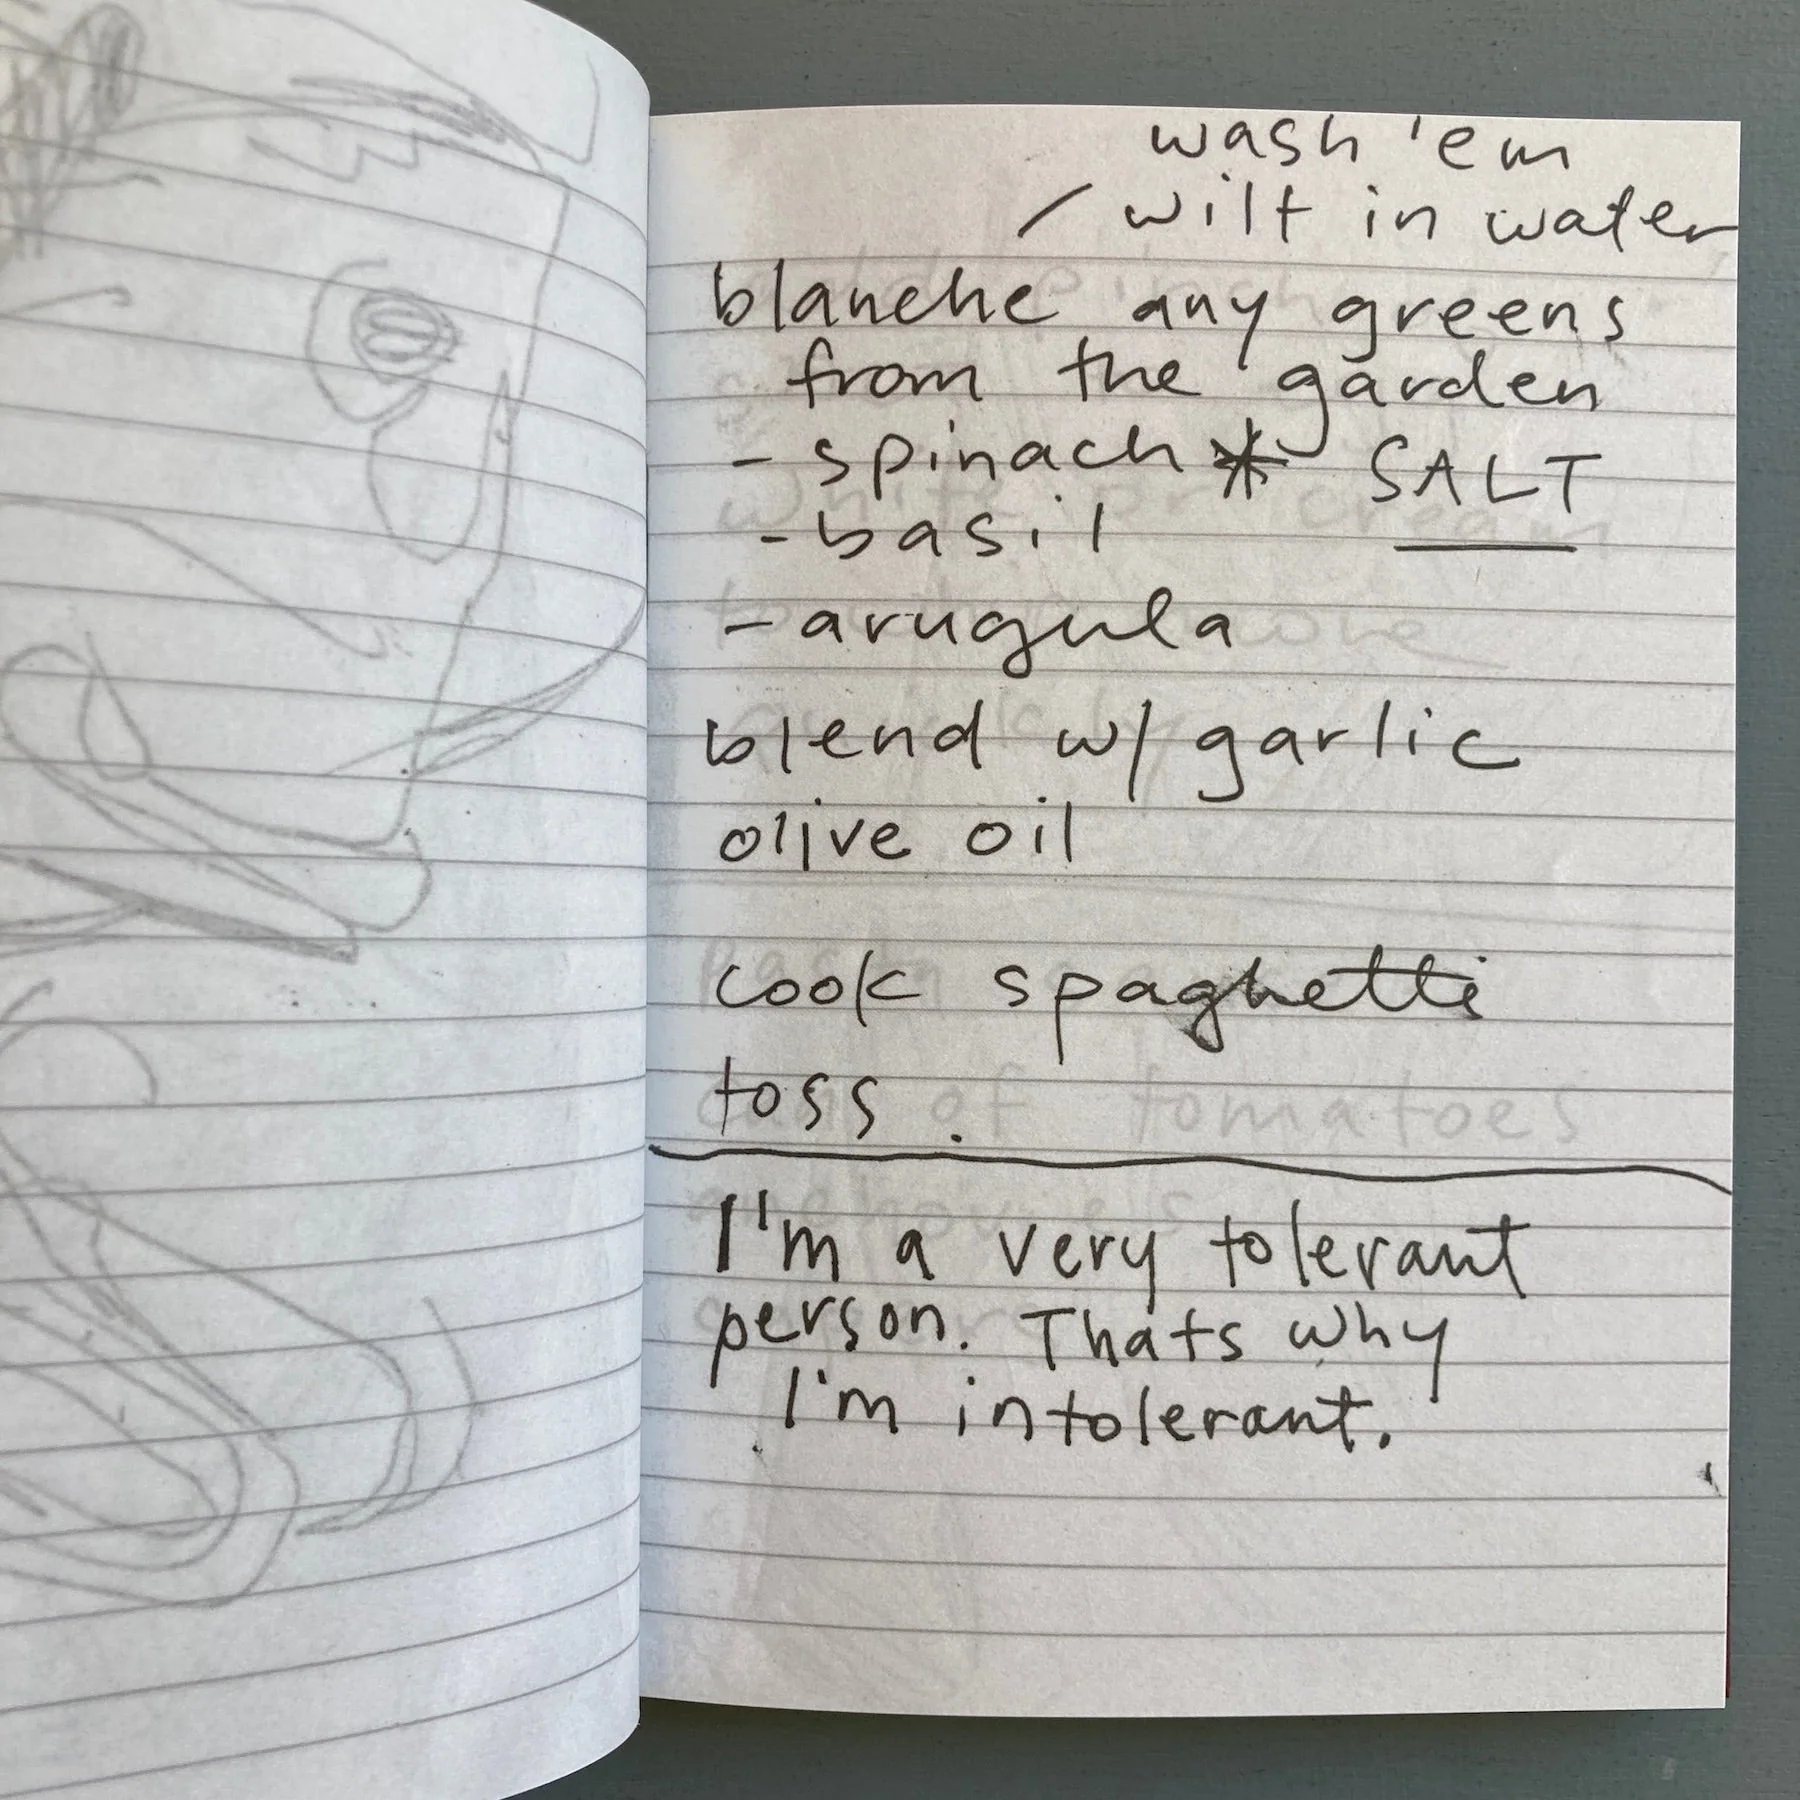 wash 'em
/ wilt in water
blanche any greens
from the garden
- spinach * SALT
- basil
- arugula
blend w/ garlic
olive oil
cook spaghetti
toss.
I'm a very tolerant
person. Thats why
I'm intolerant.